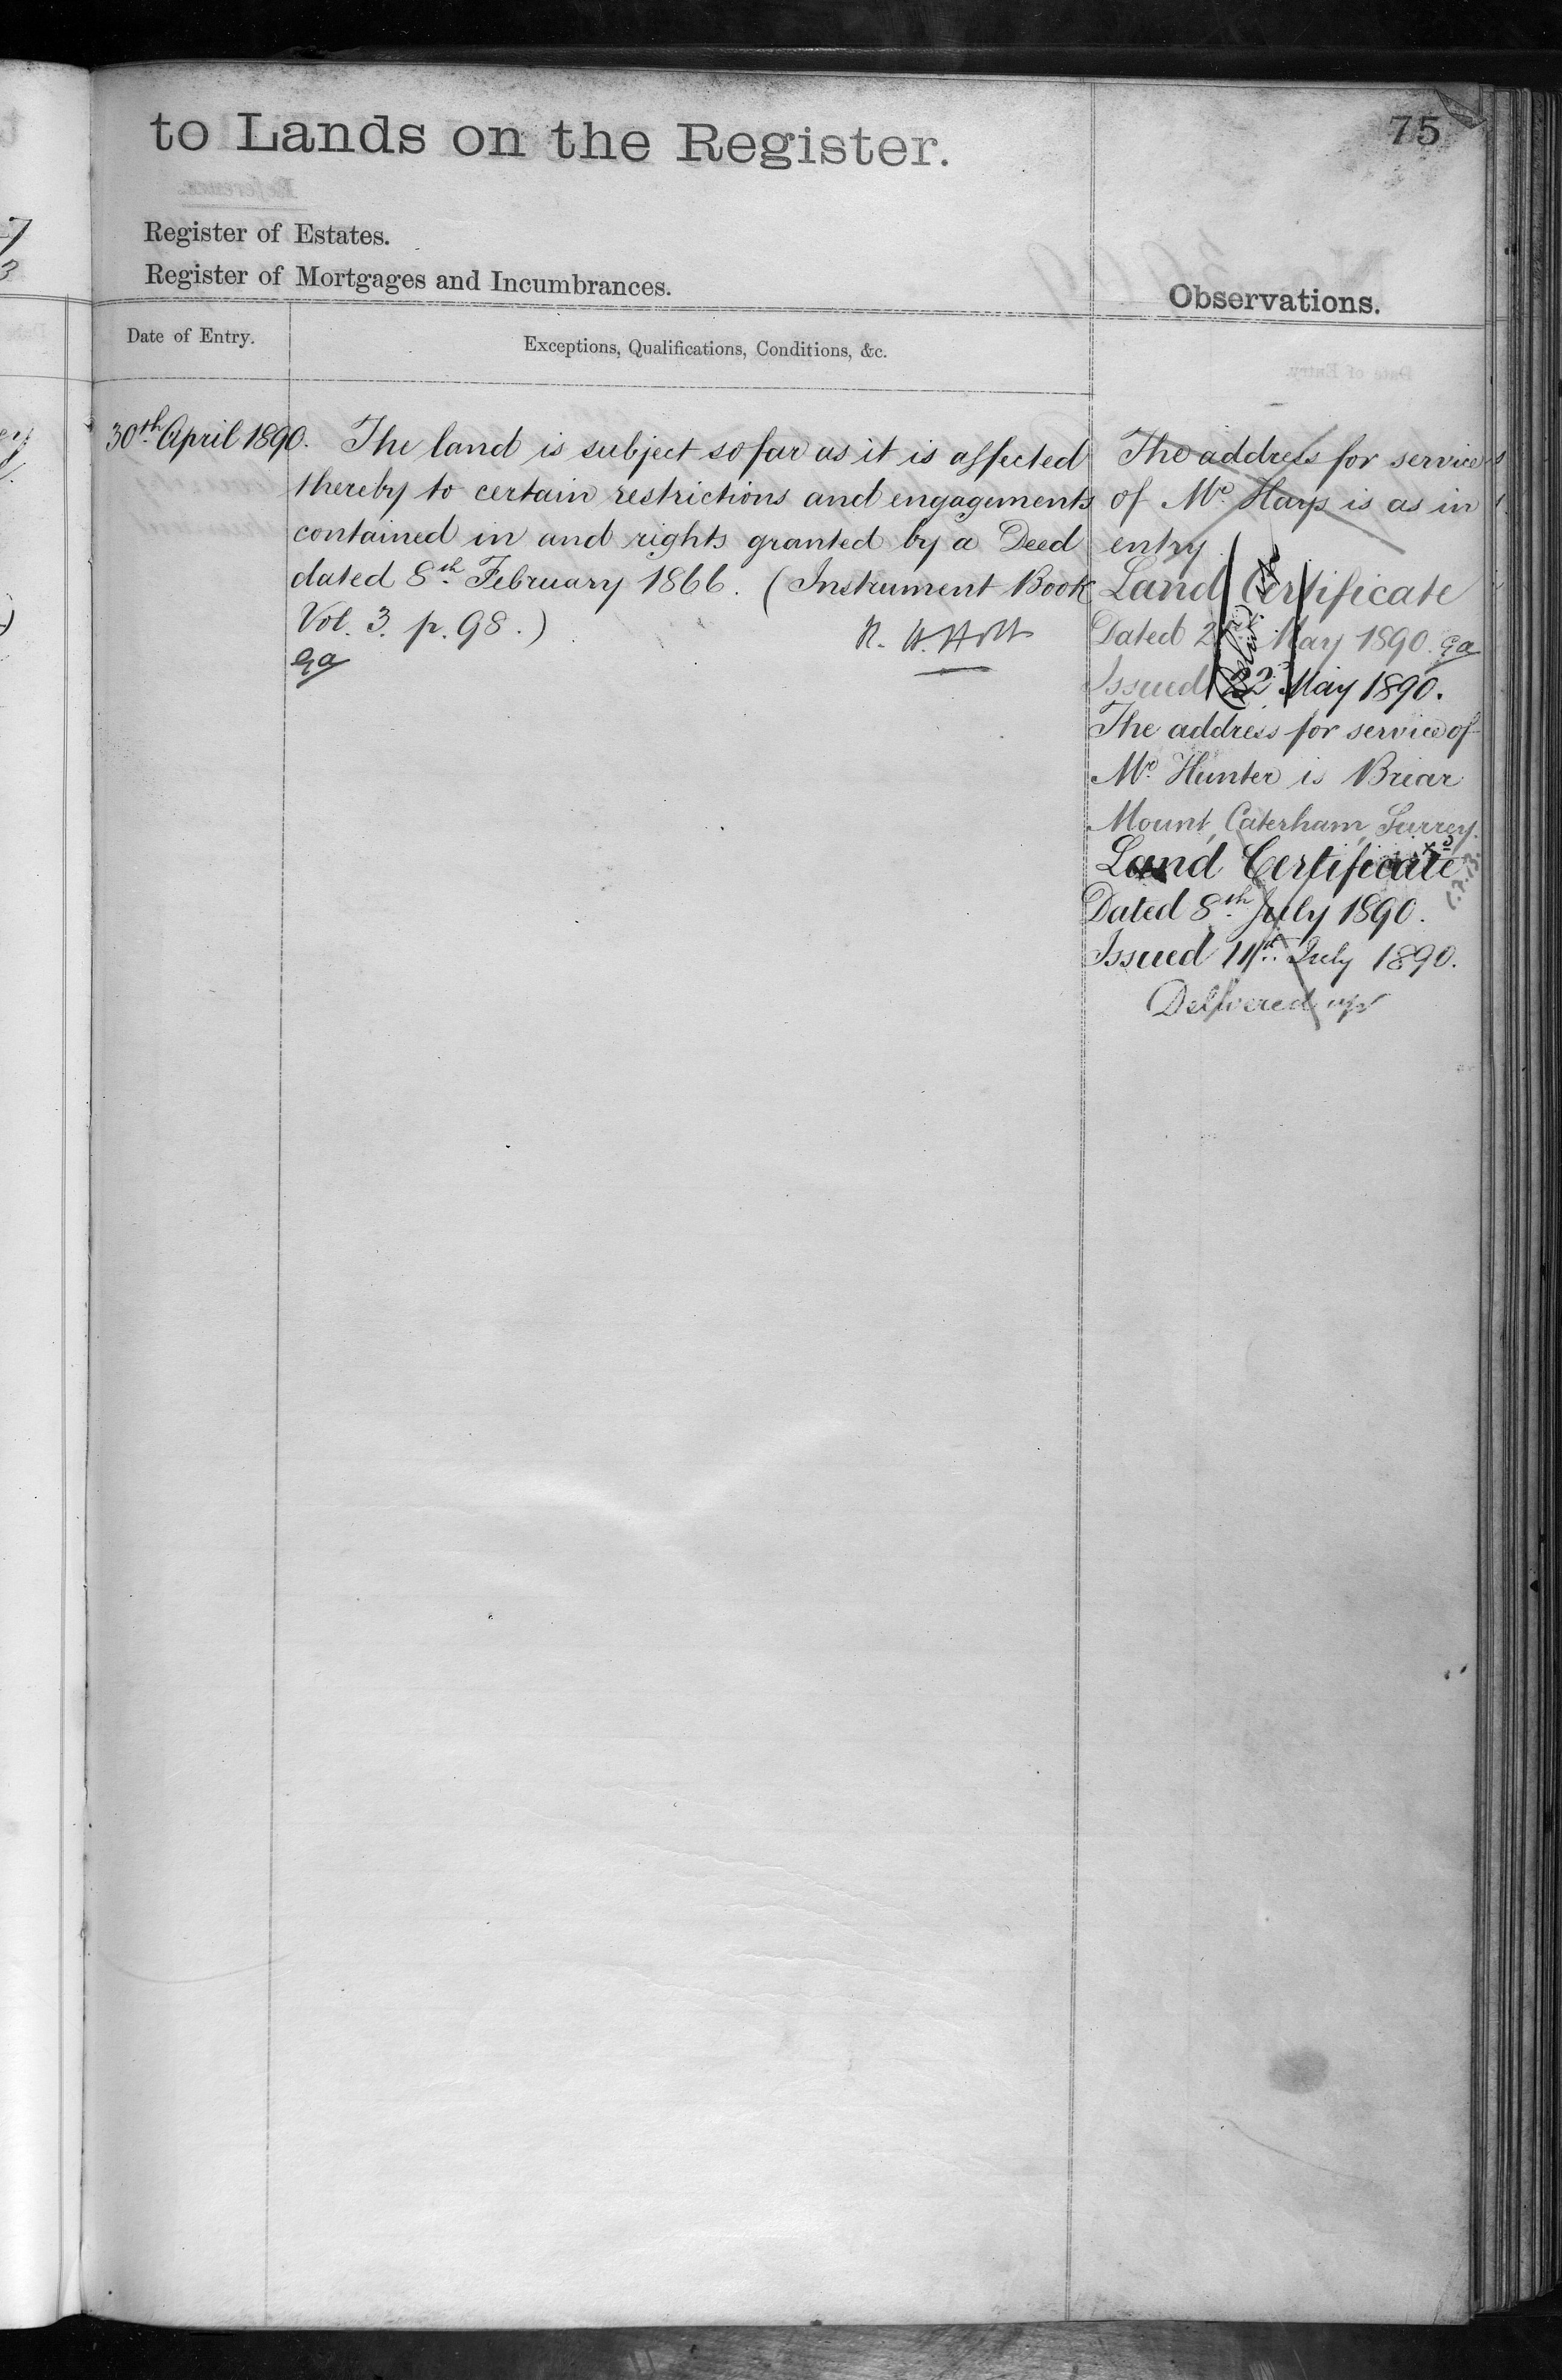 75
to Lands on the Register.
Register of Estates.
Register of Mortgages and Incumbrances.
Observations.
Date of Entry.
Exceptions, Qualifications, Conditions, &c.
30th April 1890.
The land is subject so far as it is affected
thereby to certain restrictions and engagements
contained in and rights granted by a Deed
dated 8th February 1866. (Instrument Book
Vol. 3. p. 98.)
The address for service
of Mr. Harp is as in
entry
Land Certificate
Dated May 1890.
Issued 22 May 1890.
The address for service of
Mr. Hunter is Briar
Mount, Caterham, Surrey.
Land Certificate
Dated 8th July 1890.
Issued 11th July 1890.
Delivered up